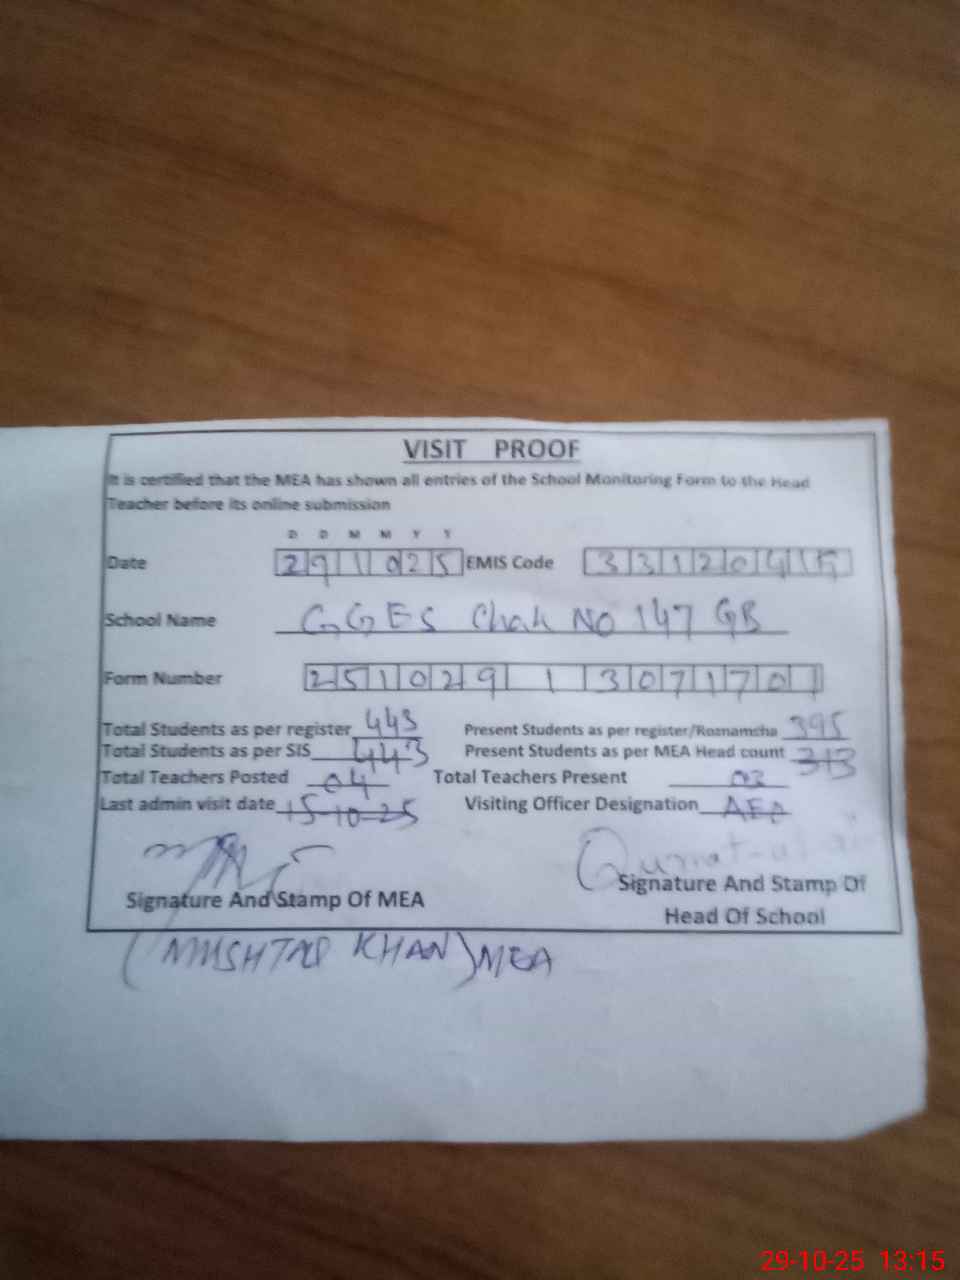 VISIT PROOF
It is certified that the MEA has shown all entries of the School Monitoring Form to the Head
Teacher before its online submission
D D M M Y Y
Date 291025 EMIS Code 3312041
School Name GGES Chak NO 147 GB
Form Number 251029 1 307170
Total Students as per register 443 Present Students as per register/Roznamcha 395
Total Students as per SIS 443 Present Students as per MEA Head count 313
Total Teachers Posted 04 Total Teachers Present 03
Last admin visit date 15-10-25 Visiting Officer Designation AEA
Signature And Stamp Of MEA Signature And Stamp Of
Head Of School
(MUSHTAQ KHAN) MEA
29-10-25 13:15